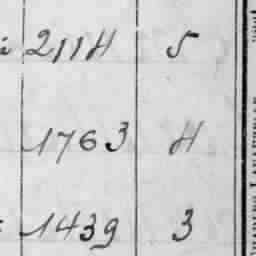 2114 5
1763 4
1439 3